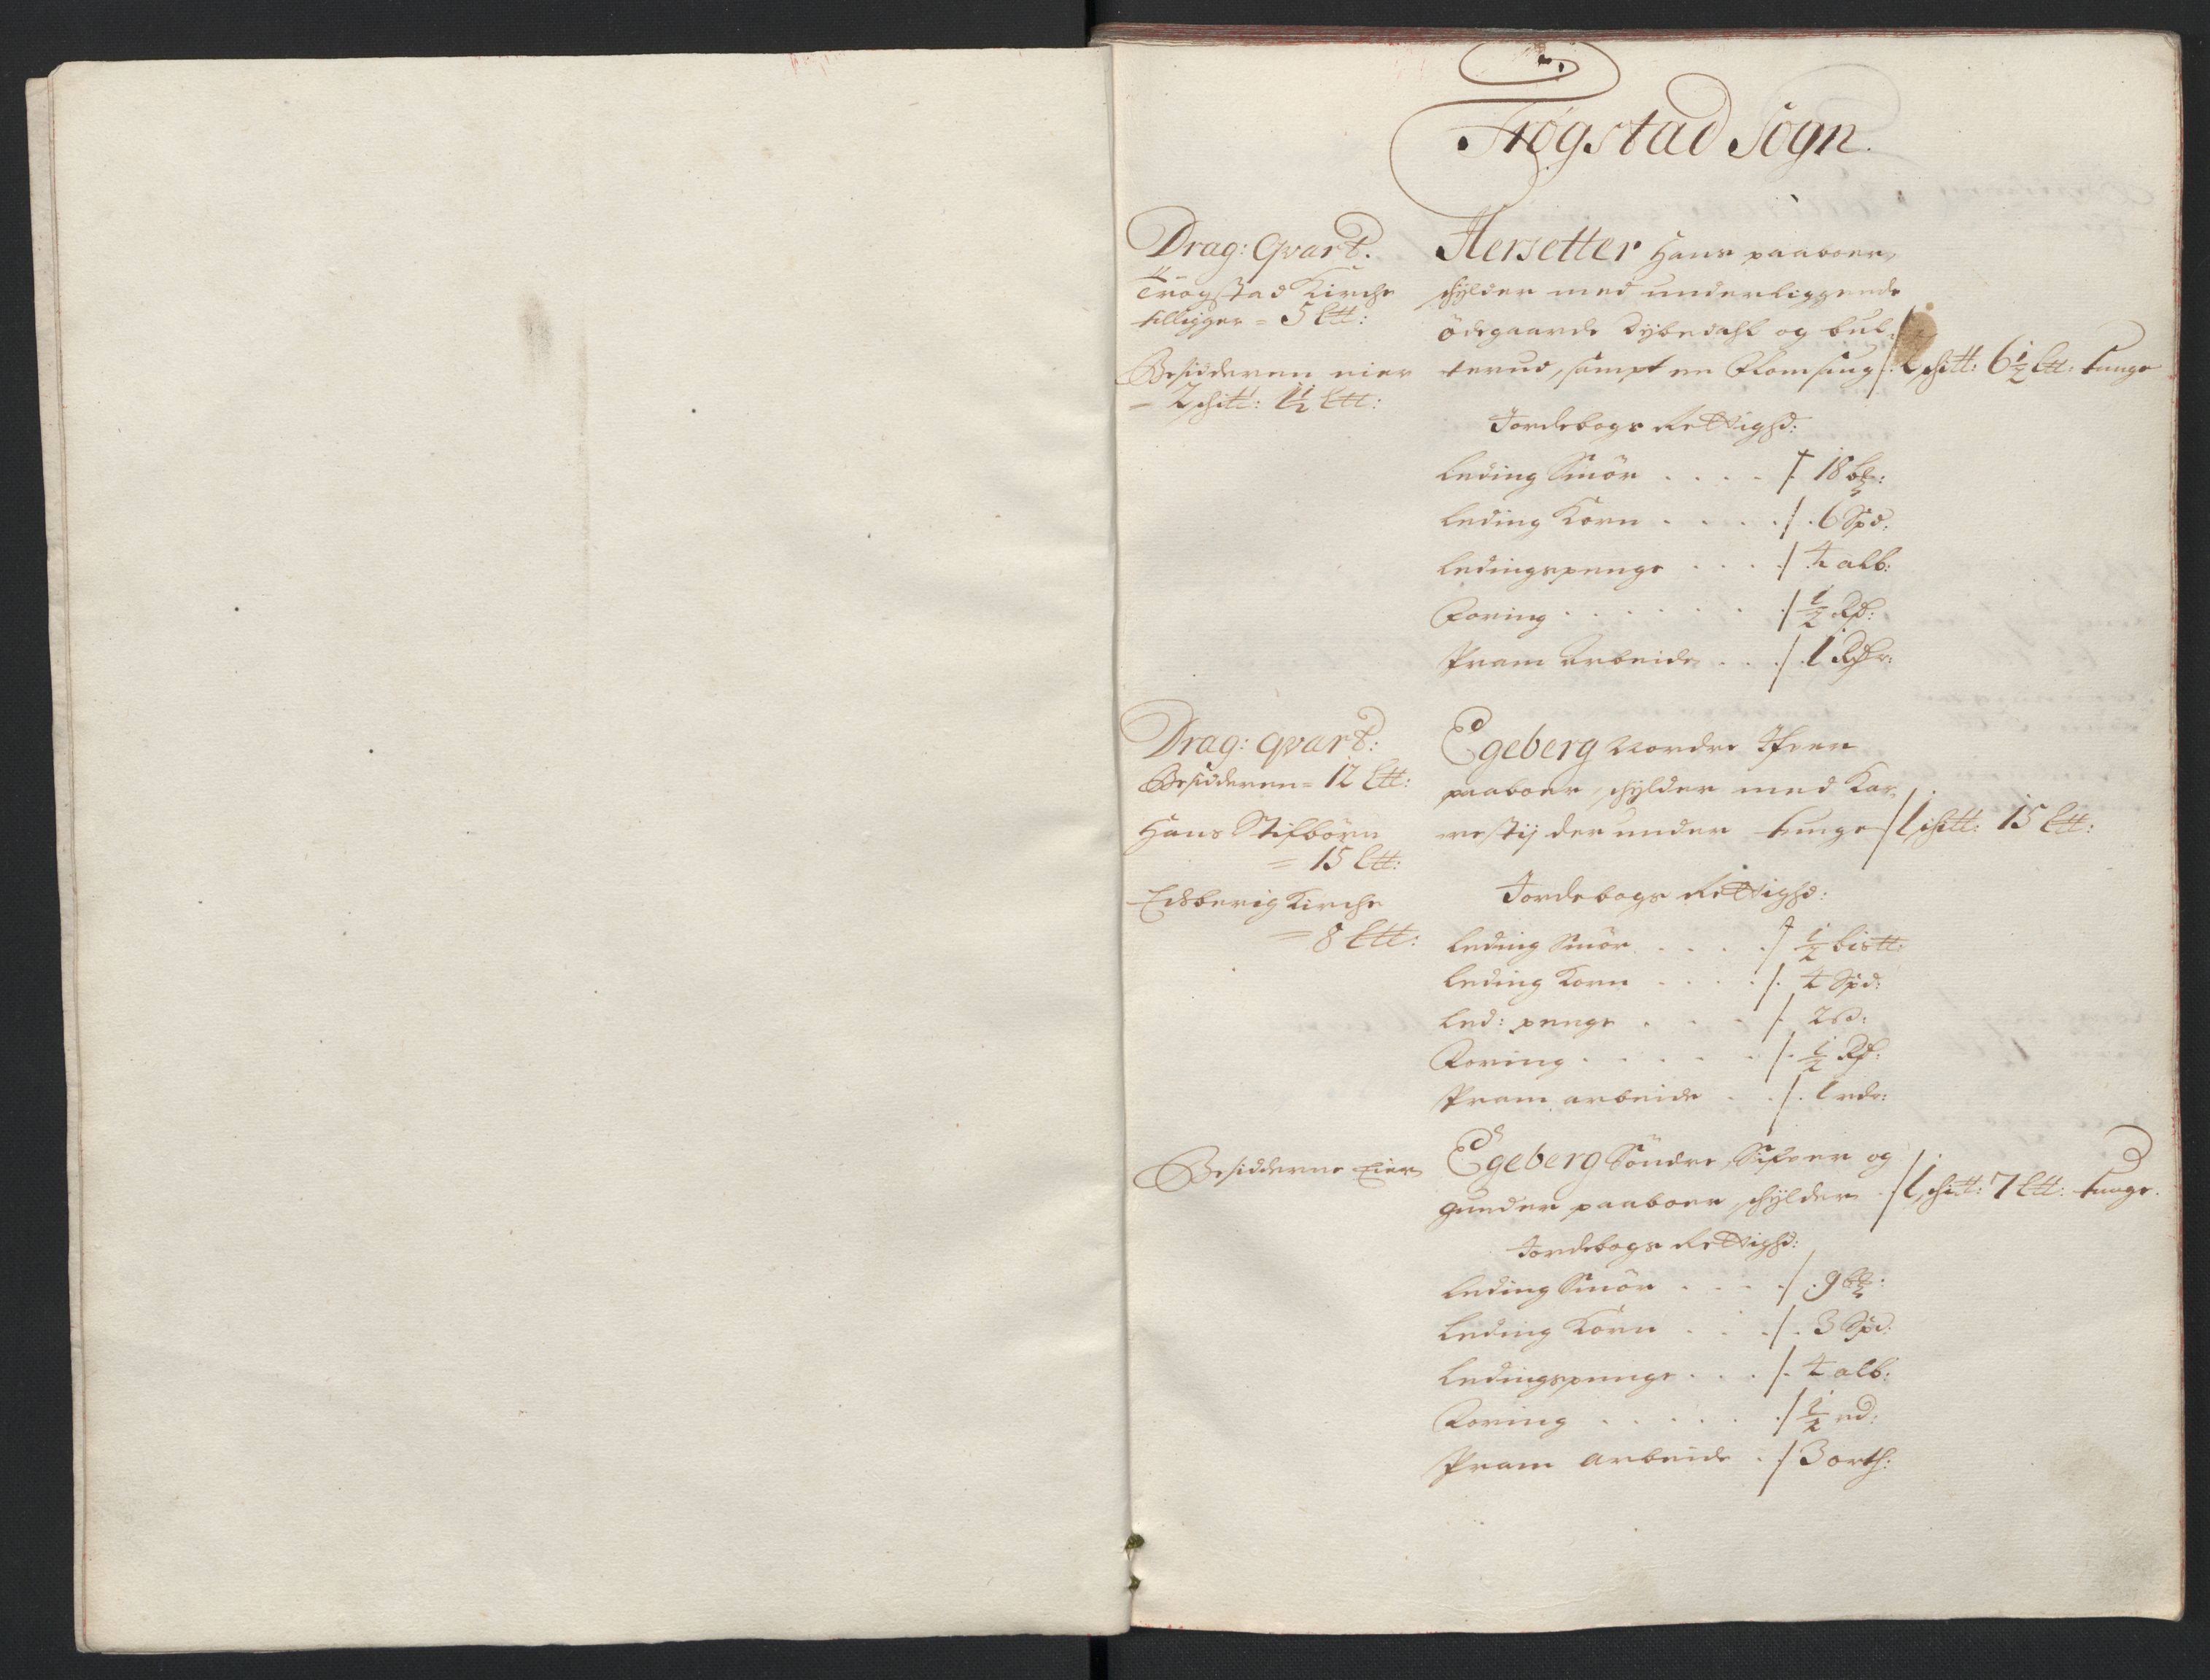 Trögstad Sogn.
Drag: Qvart.
Trögstad Kirche
tilligger = 5 Ltt:
Besidderen eier
= 2 schitt: 1½ Ltt:
Hersetter Hans paaboer,
schylder med underliggende
ödegaarde Dybedahl og bul¬
terud, sampt en Flomsaug /: 2 schitt: 6½ Ltt: tunge
Jordebogs Rettighd:
Leding Smör . . . . /. 18 bz:
Leding Korn . . . . /. 6 Spd:
Ledingspenge . . . ./ 4 alb:
Foring . . . . . . ./ ½ Rd:
Pram Arbeide . . ./. 1 Rdr:
Drag: qvart:
Besidderen = 12 Ltt:
Hans Stifbörn
= 15 Ltt:
Eidsberig Kirche
= 8 Ltt:
Egeberg Nordre Ifver
paaboer, schylder med Kar¬
restij der under tunge / 1 schitt: 15 Ltt:
Jordebogs Rettighd:
Leding Smör . . . . ./ ½ bistt:
Leding Korn . . . . /. 4 Spd:
Led: penge . . . /. 2 sd:
Foring . . . . . /. ½ Rd:
Pram arbeide . . /. 1 rdr:
Besidderne Eier
Egeberg Söndre, Sifver og
Gunder paaboer, schylder / 1 schitt: 7 Ltt: tunge.
Jordebogs Rettighd:
Leding Smör . . . ./ . 9 bz:
Leding Korn . . . ./. 3 Spd:
Ledingspenge . . . /. 4 alb:
Foring . . . . . ./ ½ rd:
Pram Arbeide . / 3 orth: